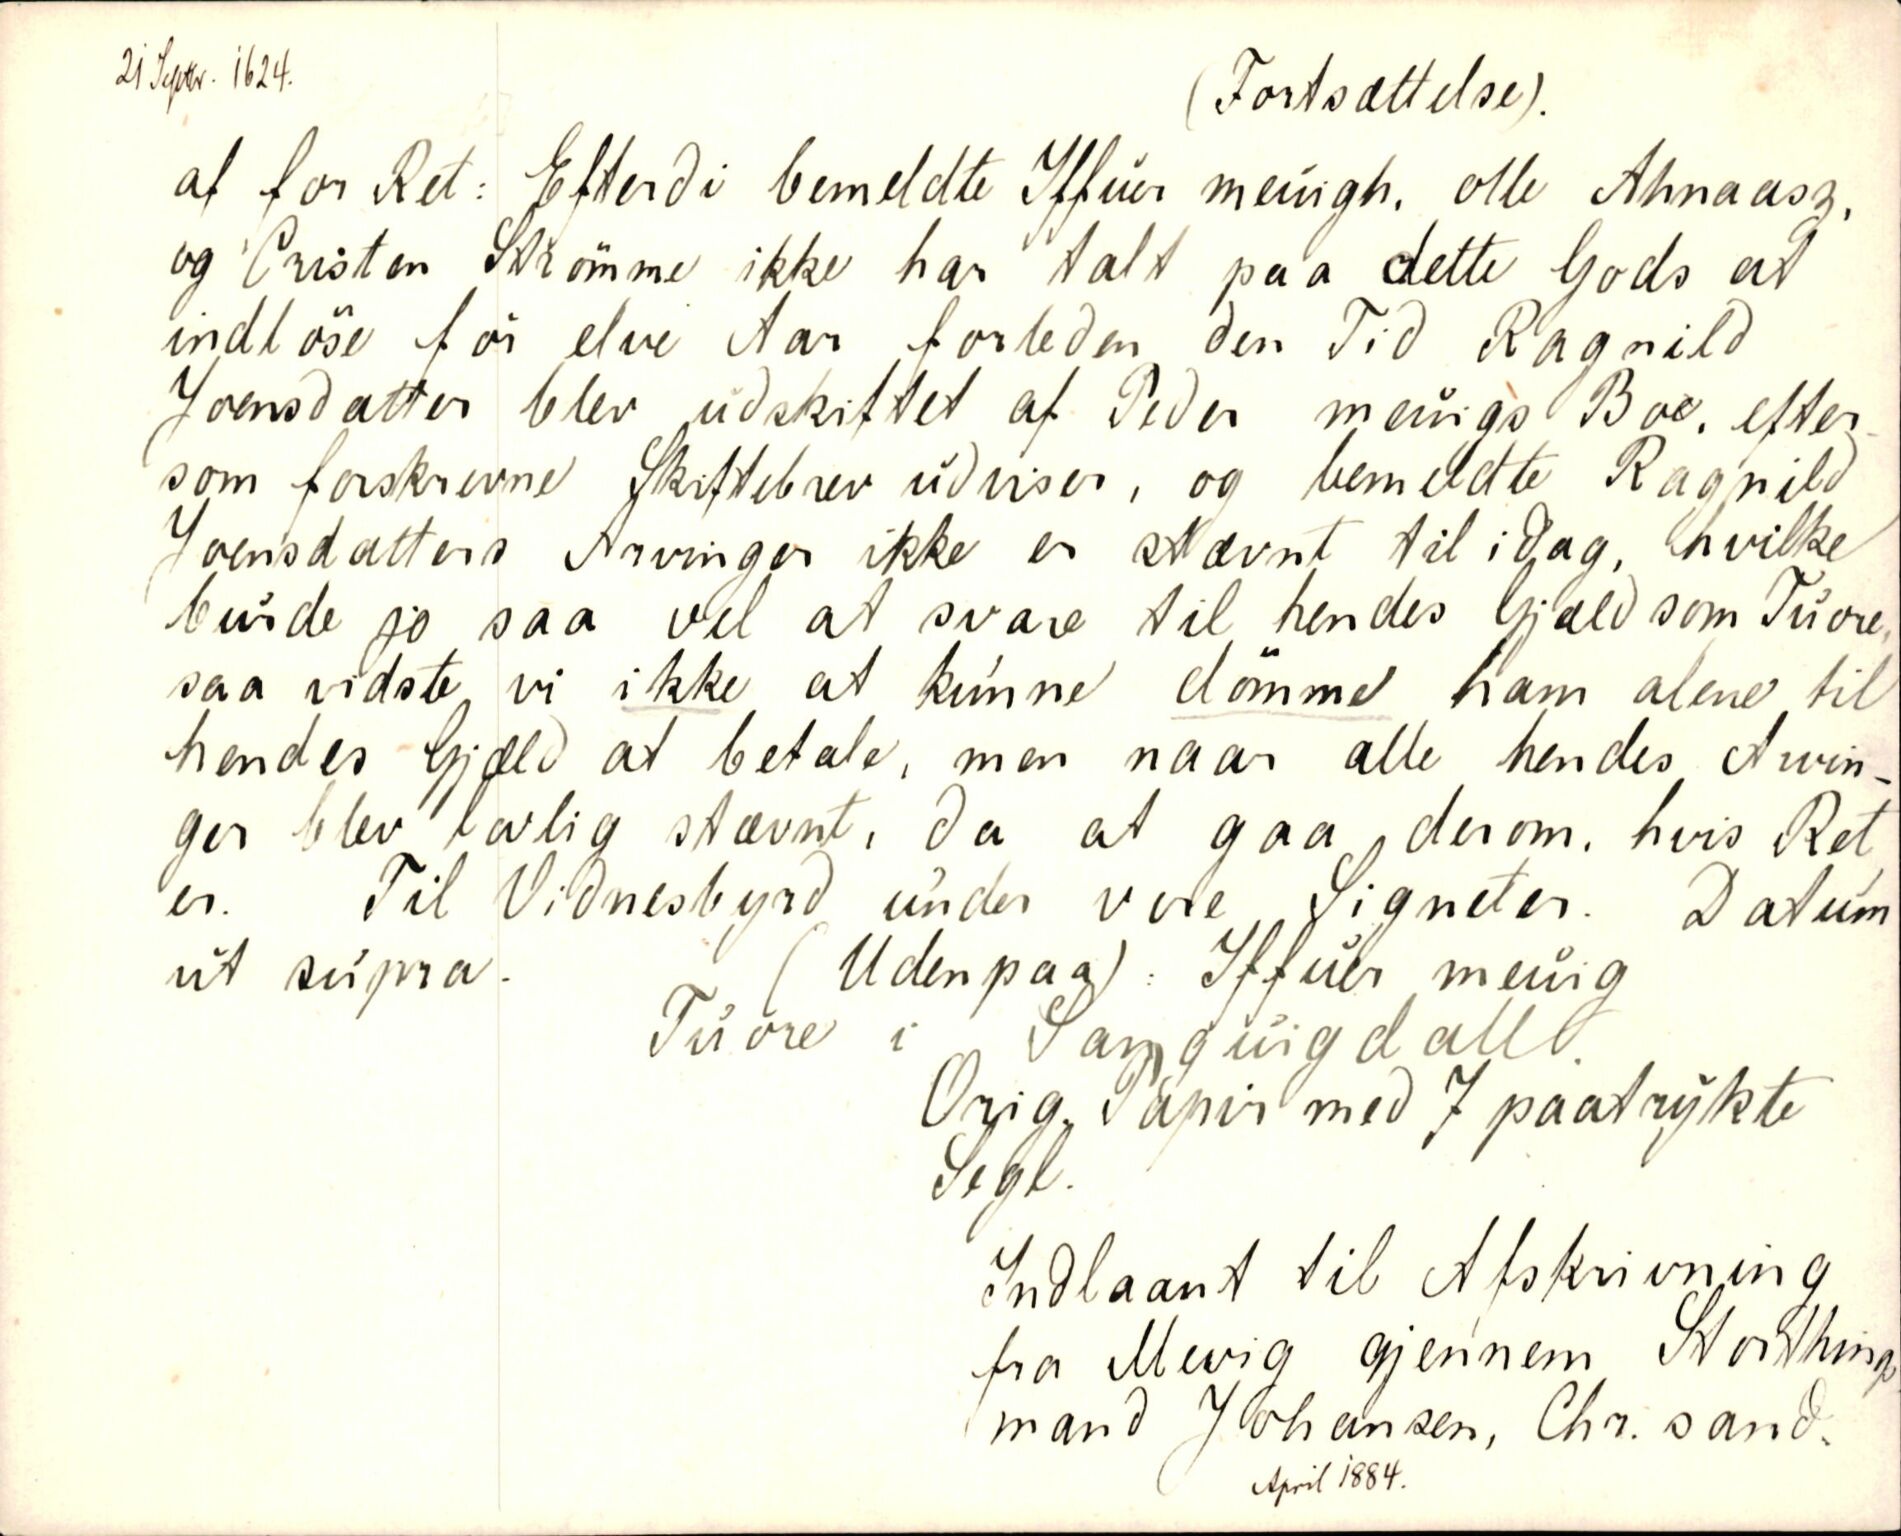 21 Septbr. 1624.
(Fortsættelse).
af for Ret: Efterdi bemeldte Iffuer meuigh, olle Ahnaasz,
og Cristen Strömme ikke har talt paa dette Gods at
indlöse för elve Aar forleden den Tid Ragnild
Joensdatter blev udskiftet af Peder meuigs Boe, efter-
som forskrevne Skiftebrev udviser, og bemeldte Ragnild
Joensdatters Arvinger ikke er stævnt til idag, hvilke
burde jo saa vel at svare til hendes Gjæld som Tuore,
saa vidste vi ikke at kunne dömme ham alene til
hendes Gjæld at betale, men naar alle hendes Arvin-
ger blev lovlig stævnt, da at gaa derom, hvis Ret
er. Til Vidnesbyrd under vore Signeter. Datum
ut supra. (Udenpaa): Iffuer meuig
Tuore i Sanguigdall.
Orig. Papir med 7 paatrykte
Segl.
Indlaant til Afskrivning
fra Mevig gjennem Storthings
mand Johansen, Chr.sand.
April 1884.